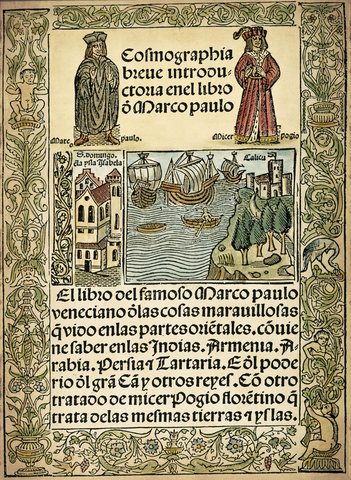 Cosmographia
breue introdu-
ctoria enel libro
đ Marco paulo
Marc paulo.
Micer Pogio
S. domingo.
ẽla ysla ysabela
Calicu
El libro del famoso Marco paulo
veneciano đlas cosas marauillosas
q̃ vido enlas partes oriẽtales. cõuie
ne saber enlas Indias. Armenia. A-
rabia. Persia ⁊ Tartaria. E đl pode
rio đl grã Cã y otros reyes. Cõ otro
tratado de micer Pogio florẽtino q̃
trata delas mesmas tierras ⁊ yslas.